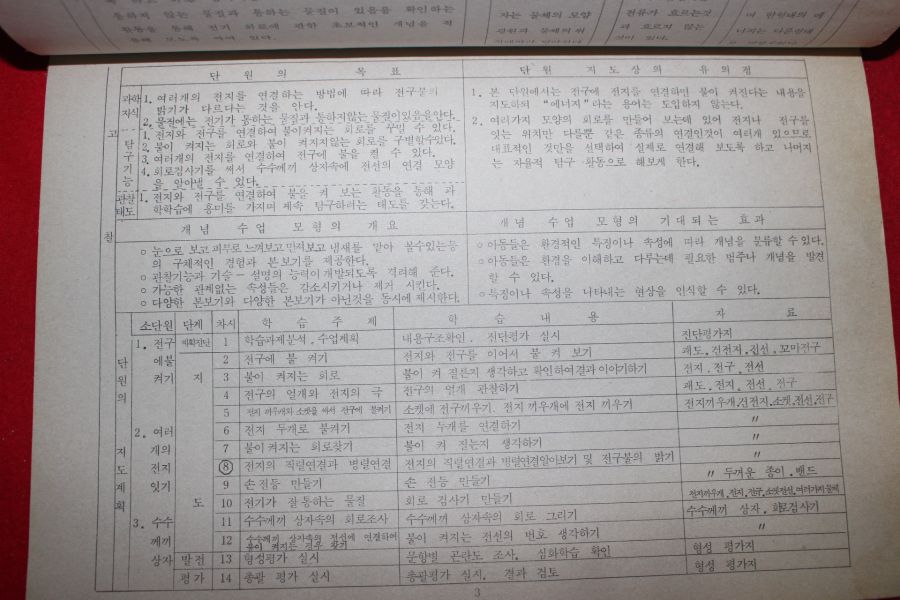 통하지 않는 물질과 통하는 물질이 있음을 확인하는
활동을 통해 전기 회로에 관한 초보적인 개념을
자는 물체의 모양
전류가 흐르는것
과 흐르지 않는
단 원 의 목 표
단원 지도상의 유의점
과학
지식
1. 여러개의 전지를 연결하는 방법에 따라 전구불의
밝기가 다르다는 것을 안다.
2. 물질에는 전기가 통하는 물질과 통하지않는 물질이있음을안다.
탐
구
기
능
1. 전지와 전구를 연결하여 불이켜지는 회로를 꾸밀 수 있다.
2. 불이 켜지는 회로와 불이 켜지지않는 회로를 구별할수있다.
3. 여러개의 전지를 연결하여 전구에 불을 켤 수 있다.
4. 회로검사기를 써서 수수께끼 상자속에 전선의 연결 모양
을 알아낼 수 있다.
관찰
태도
1. 전지와 전구를 연결하여 불을 켜 보는 활동을 통해 과
학학습에 흥미를 가지며 계속 탐구하려는 태도를 갖는다.
1. 본 단원에서는 전구에 전지를 연결하면 불이 켜진다는 내용을
지도하되 "에너지"라는 용어는 도입하지 않는다.
2. 여러가지 모양의 회로를 만들어 보는데 있어 전지나 전구를
잇는 위치만 다를뿐 같은 종류의 연결인것이 여러개 있으므로
대표적인 것만을 선택하여 실제로 연결해 보도록 하고 나머지
는 자율적 탐구 활동으로 해보게 한다.
고
찰
개념 수업 모형의 개요
개념 수업 모형의 기대되는 효과
○ 눈으로 보고 피부로 느껴보고 만져보고 냄새를 맡아 볼수있는등
의 구체적인 경험과 본보기를 제공한다.
○ 관찰기능과 기술 - 설명의 능력이 개발되도록 격려해 준다.
○ 가능한 관계없는 속성들은 감소시키거나 제거 시킨다.
○ 다양한 본보기와 다양한 본보기가 아닌것을 동시에 제시한다.
○ 아동들은 환경적인 특징이나 속성에 따라 개념을 분류할 수 있다.
○ 아동들은 환경을 이해하고 다루는데 필요한 범주나 개념을 발견
할 수 있다.
○ 특징이나 속성을 나타내는 현상을 인식할 수 있다.
단원의 지도계획
소단원 단계 차시 학 습 주 제 학 습 내 용 자 료
1. 전구 계획진단 1 학습과제분석. 수업계획 내용구조확인. 진단평가 실시 진단평가지
에불 2 전구에 불 켜기 전지와 전구를 이어서 불 켜 보기 괘도. 건전지. 집선. 꼬마전구
켜기 지 3 불이 켜지는 회로 불이 켜 질른지 생각하고 확인하여 결과 이야기하기 전지. 전구. 전선
4 전구의 얼개와 전지의 극 전구의 얼개 관찰하기 괘도. 전지. 전선. 전구
5 전지 끼우개와 소켓을 써서 전구에 불켜기 소켓에 전구끼우기. 전지 끼우개에 전지 끼우기 전지끼우개. 건전지. 소켓. 전선. 전구
2. 여러 6 전지 두개로 불켜기 전지 두개를 연결하기 〃
개의 7 불이 켜지는 회로찾기 불이 켜 질는지 생각하기 〃
전지 ⑧ 전지의 직렬연결과 병렬연결 전지의 직렬연결과 병렬연결알아보기 및 전구불의 밝기 〃
잇기 9 손 전등 만들기 손 전등 만들기 〃 두꺼운 종이. 밴드
도 10 전기가 잘 통하는 물질 회로 검사기 만들기 전지끼우개. 전지. 전구. 소켓전선. 여러가지 물체
3. 수수 11 수수께끼 상자속의 회로조사 수수께끼 상자속의 회로 그리기 수수께끼 상자. 회로검사기
께끼 12 수수께끼 상자속의 전선에 연결하여
불이 켜지는 경우 찾기 불이 켜지는 전선의 번호 생각하기 〃
상자 발전 13 형성평가 실시 문항별 곤란도 조사. 심화학습 확인 형성 평가지
평가 14 총괄 평가 실시 총괄평가 실시. 결과 검토 형성 평가지
3